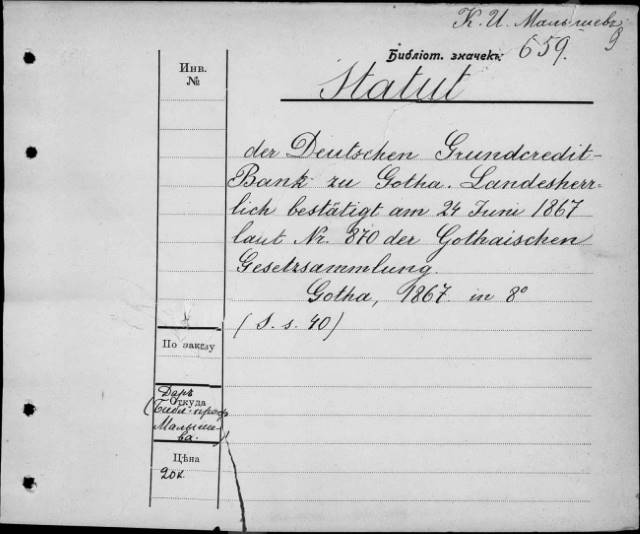 К. И. Малышевъ
Библіот. значекъ: 659. 9
Инв.
№
Statut
der Deutschen Grundcredit-
Bank zu Gotha. Landesherr-
lich bestätigt am 24 Juni 1867
laut Nr. 870 der Gothaischen
Gesetzsammlung.
Gotha, 1867 in 8°
(S. s. 40)
По заказу
Даръ
Откуда
(Библ. проф
Малыше
ва.)
Цѣна
20к.